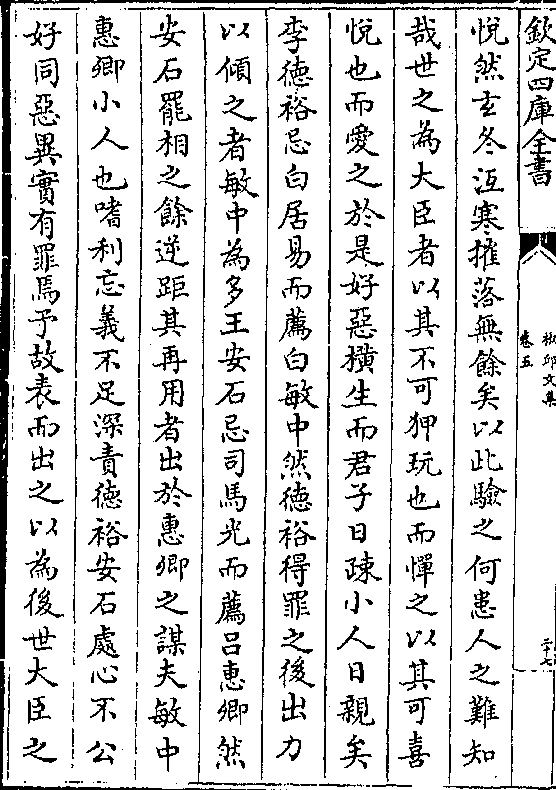 欽定四庫全書
椒邱文集
卷五
二十七
悅然玄冬沍寒摧落無餘矣以此驗之何患人之難知
哉世之為大臣者以其不可狎玩也而憚之以其可喜
悅也而愛之於是好惡橫生而君子日疎小人日親矣
李德裕忌白居易而薦白敏中然德裕得罪之後出力
以傾之者敏中為多王安石忌司馬光而薦呂惠卿然
安石罷相之餘逆距其再用者出於惠卿之謀夫敏中
惠卿小人也嗜利忘義不足深責德裕安石處心不公
好同惡異實有罪焉予故表而出之以為後世大臣之